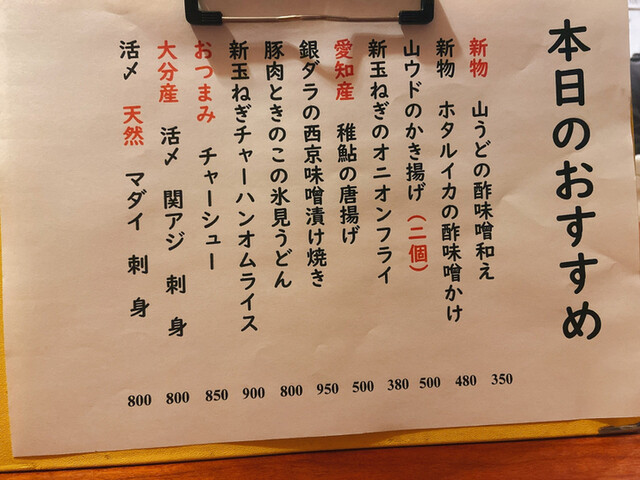 本日のおすすめ
新物 山うどの酢味噌和え 350
新物 ホタルイカの酢味噌かけ 480
山ウドのかき揚げ(二個) 500
新玉ねぎのオニオンフライ 380
愛知産 稚鮎の唐揚げ 500
銀ダラの西京味噌漬け焼き 950
豚肉ときのこの氷見うどん 800
新玉ねぎチャーハンオムライス 900
おつまみ チャーシュー 850
大分産 活〆 関アジ 刺 身 800
活〆 天然 マダイ 刺 身 800